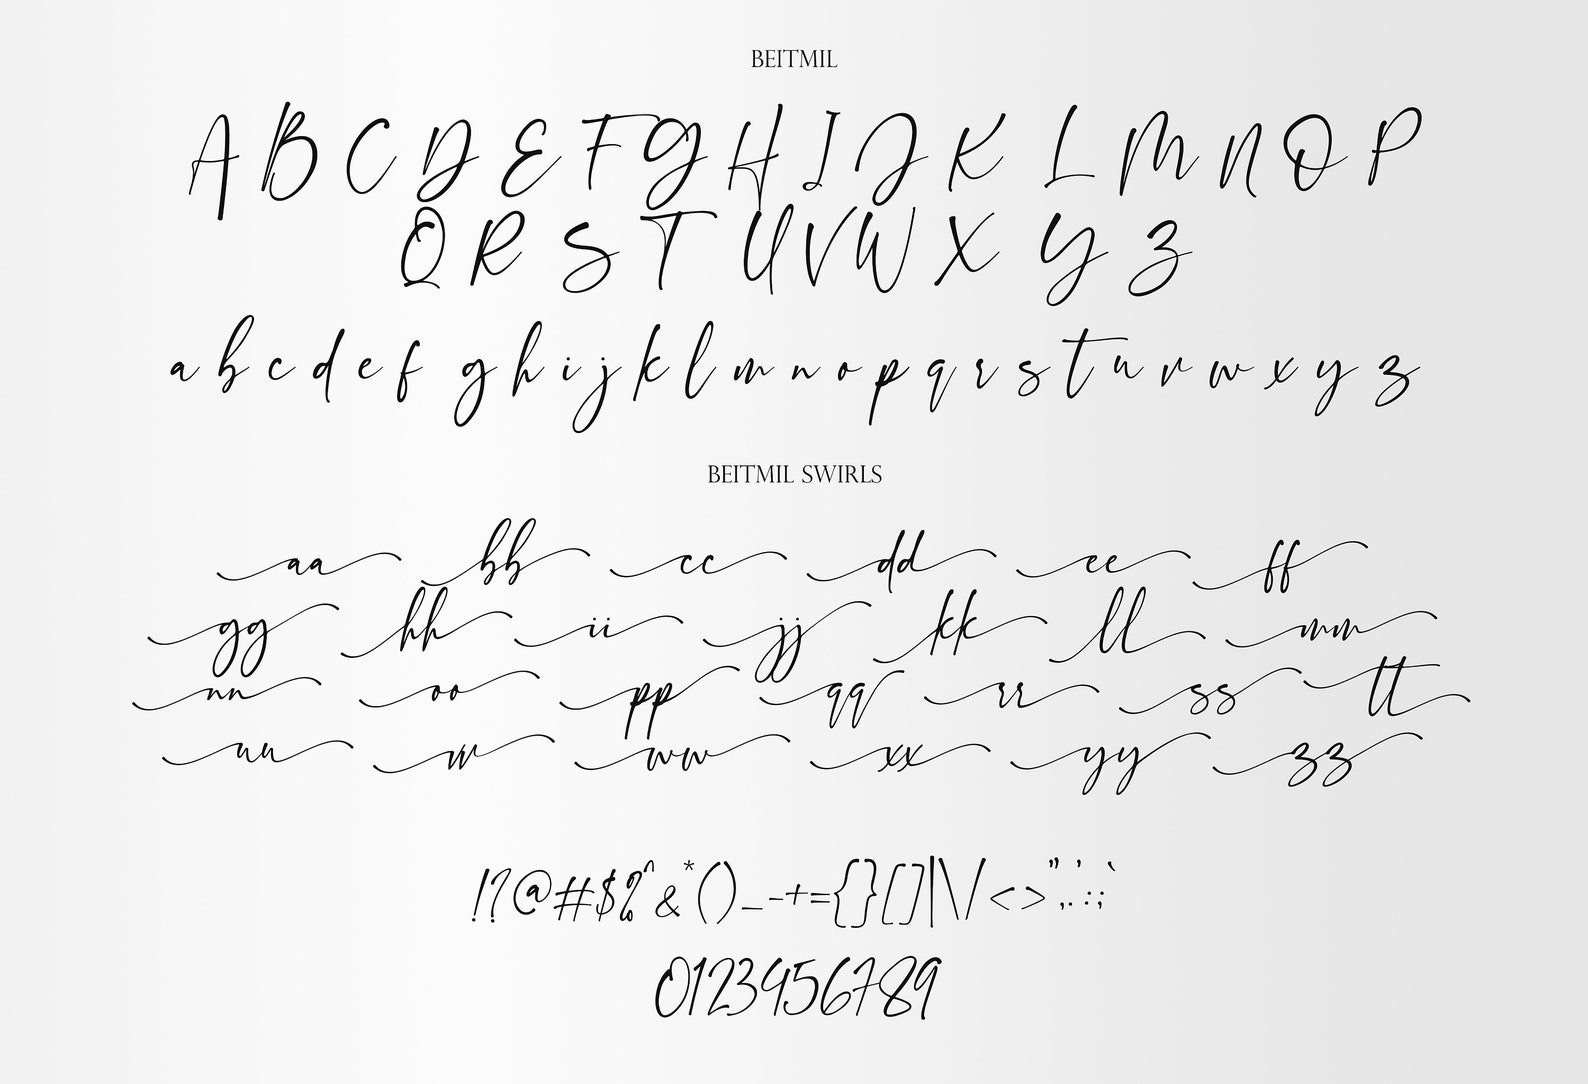 BEITMIL
A B C D E F G H I J K L M N O P
Q R S T U V W X Y Z
a b c d e f g h i j k l m n o p q r s t u v w x y z
BEITMIL SWIRLS
aa bb cc dd ee ff
gg hh ii jj kk ll mm
nn oo pp qq rr ss tt
uu vv ww xx yy zz
!?@#$%^&*()_-+={}[]|\/<>"',.:;`
0123456789